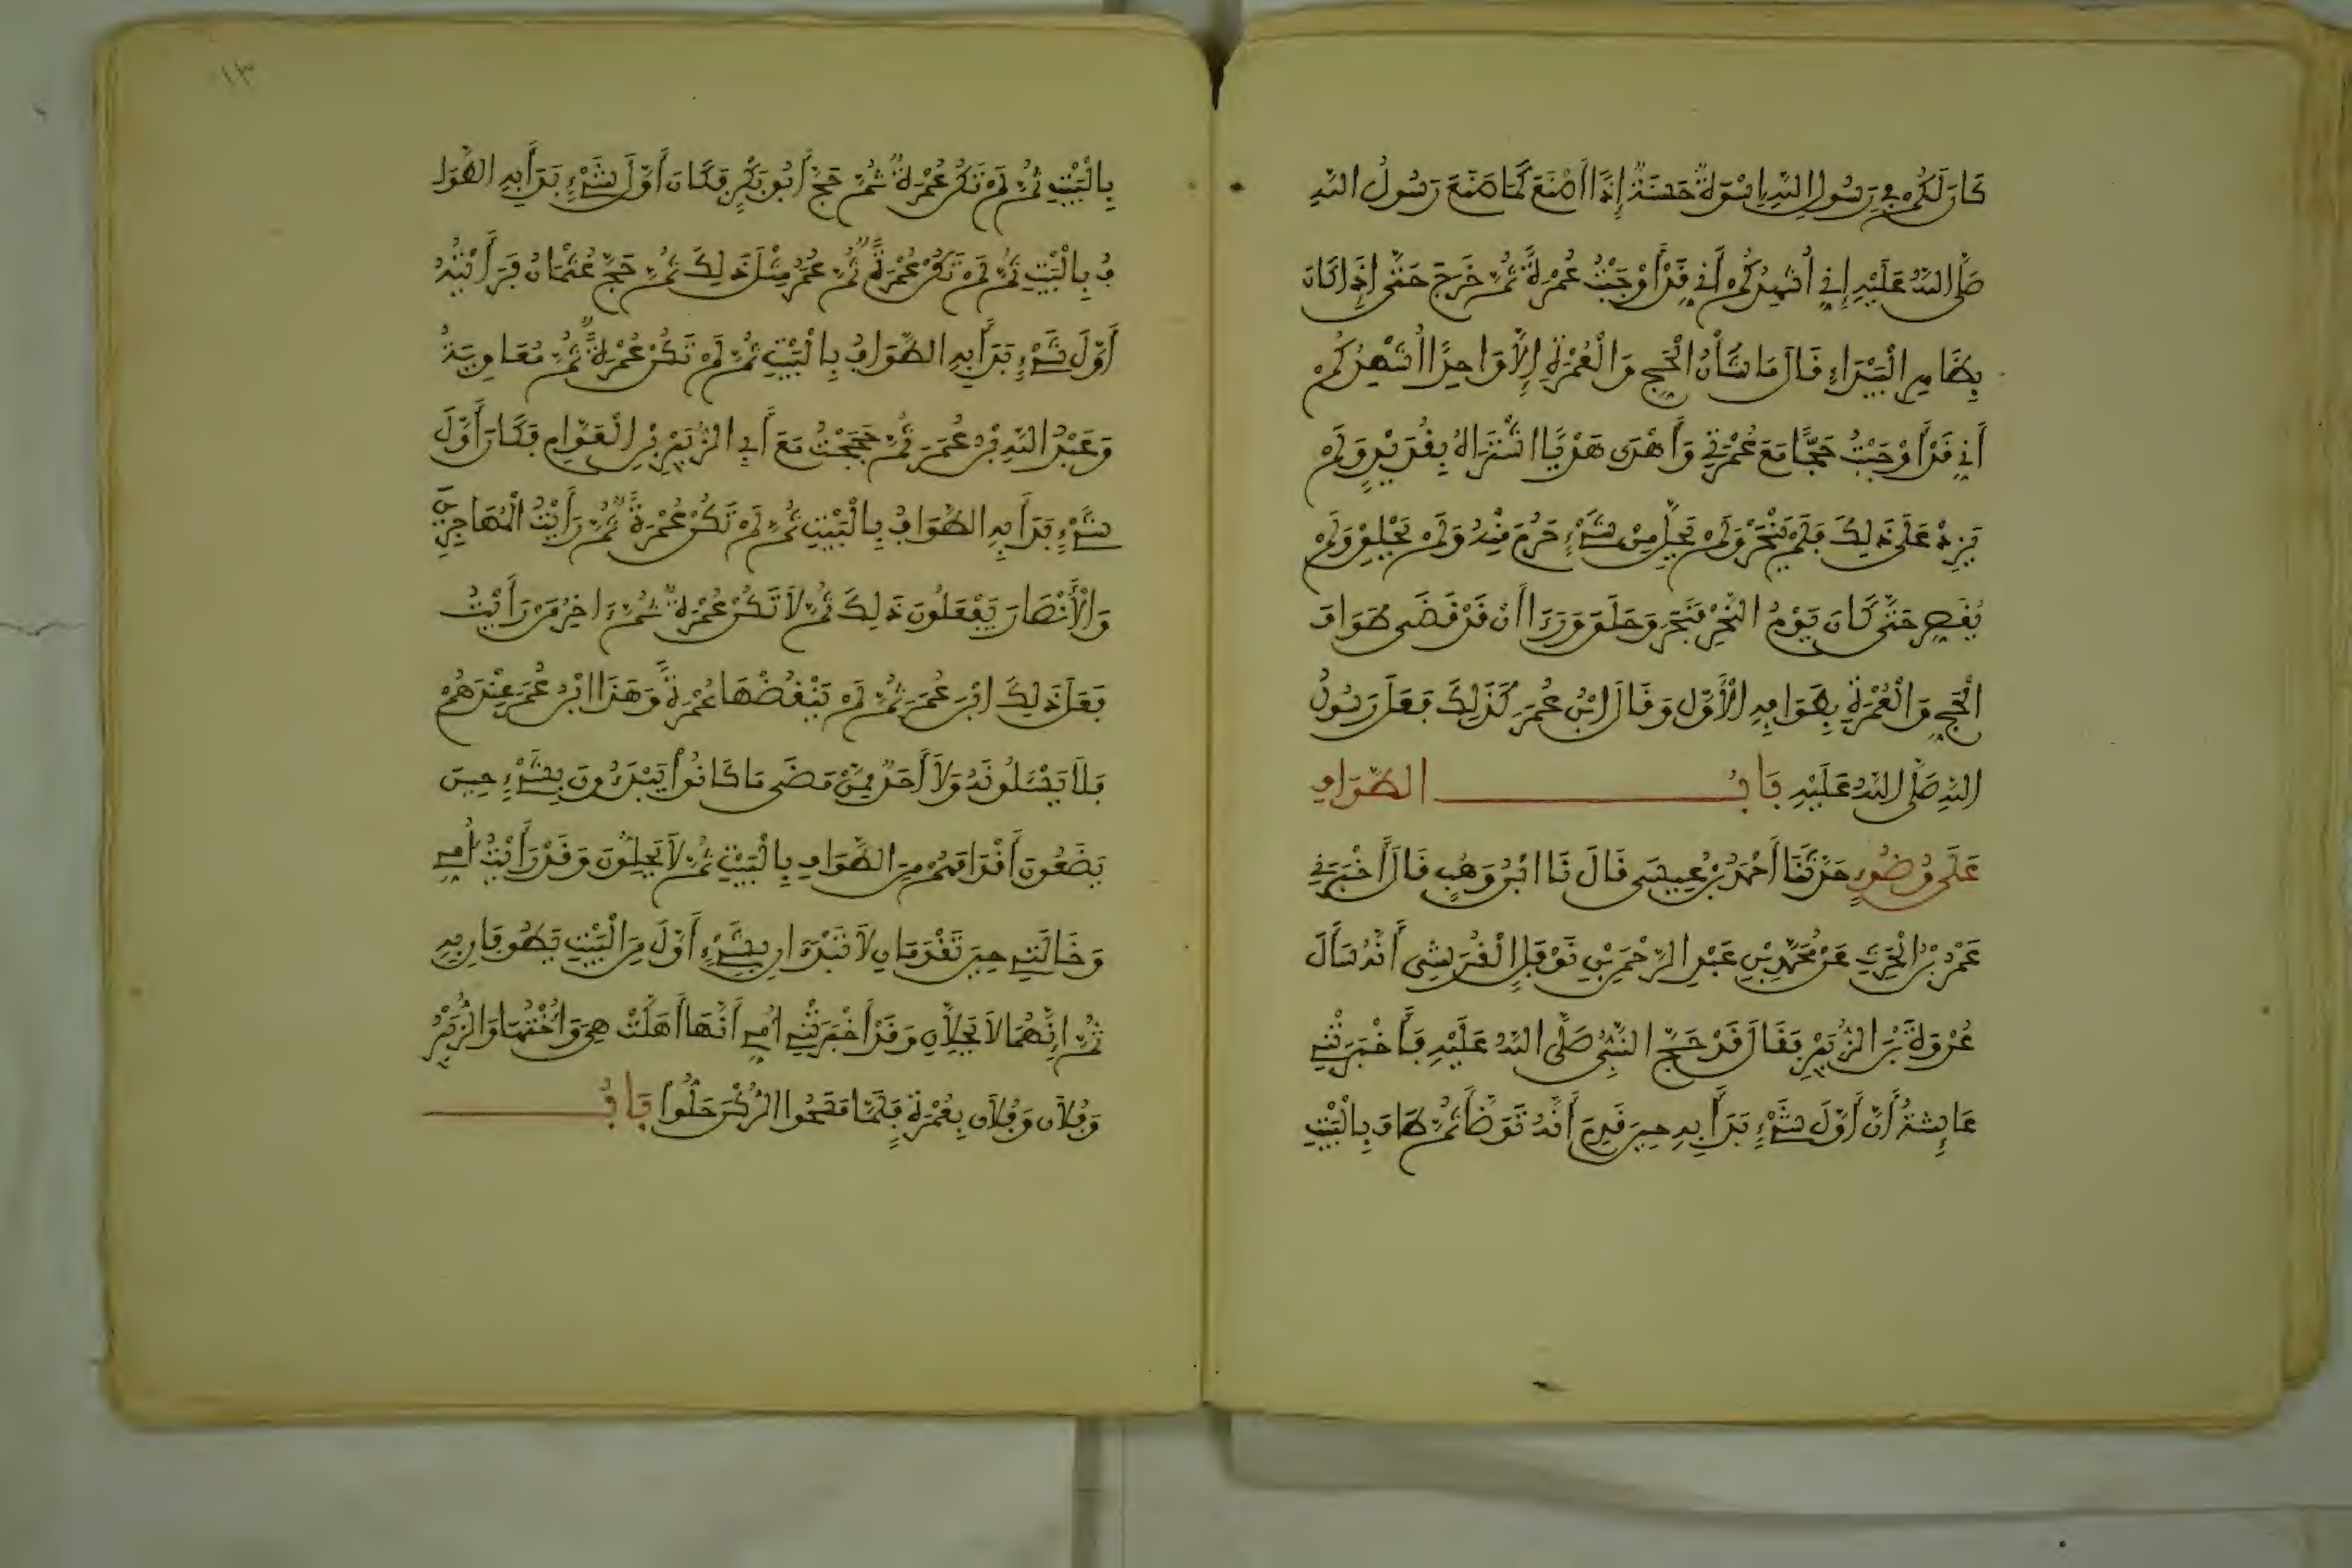 كَانَ لَكُمْ فِي رَسُولِ اللَّهِ إِسْوَةٌ حَسَنَةٌ إِذًا أَصْنَعَ كَمَا صَنَعَ رَسُولُ اللَّهِ
صَلَّى اللَّهُ عَلَيْهِ إِنِّي أُشْهِدُكُمْ أَنِّي قَدْ أَوْجَبْتُ عُمْرَةً ثُمَّ خَرَجَ حَتَّى إِذَا كَانَ
بِظَاهِرِ الْبَيْدَاءِ قَالَ مَا شَأْنُ الْحَجِّ وَالْعُمْرَةِ إِلَّا وَاحِدًا أُشْهِدُكُمْ
أَنِّي قَدْ أَوْجَبْتُ حَجًّا مَعَ عُمْرَتِي وَأَهْدَى هَدْيًا اشْتَرَاهُ بِقُدَيْدٍ وَلَمْ
يَزِدْ عَلَى ذَلِكَ فَلَمْ يَنْحَرْ وَلَمْ يَحِلَّ مِنْ شَيْءٍ حَرُمَ مِنْهُ وَلَمْ يَحْلِقْ وَلَمْ
يُقَصِّرْ حَتَّى كَانَ يَوْمُ النَّحْرِ فَنَحَرَ وَحَلَقَ وَرَءَا أَنْ قَدْ قَضَى طَوَافَ
الْحَجِّ وَالْعُمْرَةِ بِطَوَافِهِ الْأَوَّلِ وَقَالَ ابْنُ عُمَرَ كَذَلِكَ فَعَلَ رَسُولُ
اللَّهِ صَلَّى اللَّهُ عَلَيْهِ بَابُ الطَّوَافِ
عَلَى وُضُوءٍ حَدَّثَنَا أَحْمَدُ بْنُ عِيسَى قَالَ نَا ابْنُ وَهْبٍ قَالَ أَخْبَرَنِي
عَمْرُو بْنُ الْحَرِثِ عَنْ مُحَمَّدِ بْنِ عَبْدِ الرَّحْمَنِ بْنِ نَوْفَلٍ الْقُرَشِيِّ أَنَّهُ سَأَلَ
عُرْوَةَ بْنَ الزُّبَيْرِ فَقَالَ قَدْ حَجَّ النَّبِيُّ صَلَّى اللَّهُ عَلَيْهِ فَأَخْبَرَتْنِي
عَائِشَةُ أَنَّ أَوَّلَ شَيْءٍ بَدَأَ بِهِ حِينَ قَدِمَ أَنَّهُ تَوَضَّأَ ثُمَّ طَافَ بِالْبَيْتِ
بِالْبَيْتِ ثُمَّ لَمْ تَكُنْ عُمْرَةٌ ثُمَّ حَجَّ أَبُو بَكْرٍ فَكَانَ أَوَّلَ شَيْءٍ بَدَأَ بِهِ الطَّوَا
فُ بِالْبَيْتِ ثُمَّ لَمْ تَكُنْ عُمْرَةً ثُمَّ عُمَرُ مِثْلَ ذَلِكَ ثُمَّ حَجَّ عُثْمَانُ فَرَأَيْتُهُ
أَوَّلَ شَيْءٍ بَدَأَ بِهِ الطَّوَافُ بِالْبَيْتِ ثُمَّ لَمْ تَكُنْ عُمْرَةً ثُمَّ مُعَاوِيَةُ
وَعَبْدُ اللَّهِ بْنُ عُمَرَ ثُمَّ حَجَجْتُ مَعَ أَبِي الزُّبَيْرِ بْنِ الْعَوَّامِ فَكَانَ أَوَّلَ
شَيْءٍ بَدَأَ بِهِ الطَّوَافُ بِالْبَيْتِ ثُمَّ لَمْ تَكُنْ عُمْرَةً ثُمَّ رَأَيْتُ الْمُهَاجِرِينَ
وَالْأَنْصَارَ يَفْعَلُونَ ذَلِكَ ثُمَّ لَا تَكُنْ عُمْرَةٌ ثُمَّ ءَاخِرُ مَنْ رَأَيْتُ
فَعَلَ ذَلِكَ ابْنَ عُمَرَ ثُمَّ لَمْ يَنْقُضْهَا عُمْرَةً وَهَذَا ابْنُ عُمَرَ عِنْدَهُمْ
فَلَا يَسْئَلُونَهُ وَلَا أَحَدٌ مِمَّنْ مَضَى مَا كَانُوا يَبْدَءُونَ بِشَيْءٍ حِينَ
يَضَعُونَ أَقْدَامَهُمْ مِنَ الطَّوَافِ بِالْبَيْتِ ثُمَّ لَا يَحِلُّونَ وَقَدْ رَأَيْتُ أُمِّي
وَخَالَتِي حِينَ تَقْدَمَانِ لَا تَبْدَءَانِ بِشَيْءٍ أَوَّلَ مِنَ الْبَيْتِ تَطُوفَانِ بِهِ
ثُمَّ إِنَّهُمَا لَا تَحِلَّانِ وَقَدْ أَخْبَرَتْنِي أُمِّي أَنَّهَا أَهَلَّتْ هِيَ وَأُخْتُهَا وَالزُّبَيْرُ
وَفُلَانٌ وَفُلَانٌ بِعُمْرَةٍ فَلَمَّا مَسَحُوا الرُّكْنَ حَلُّوا بَابُ
١٣